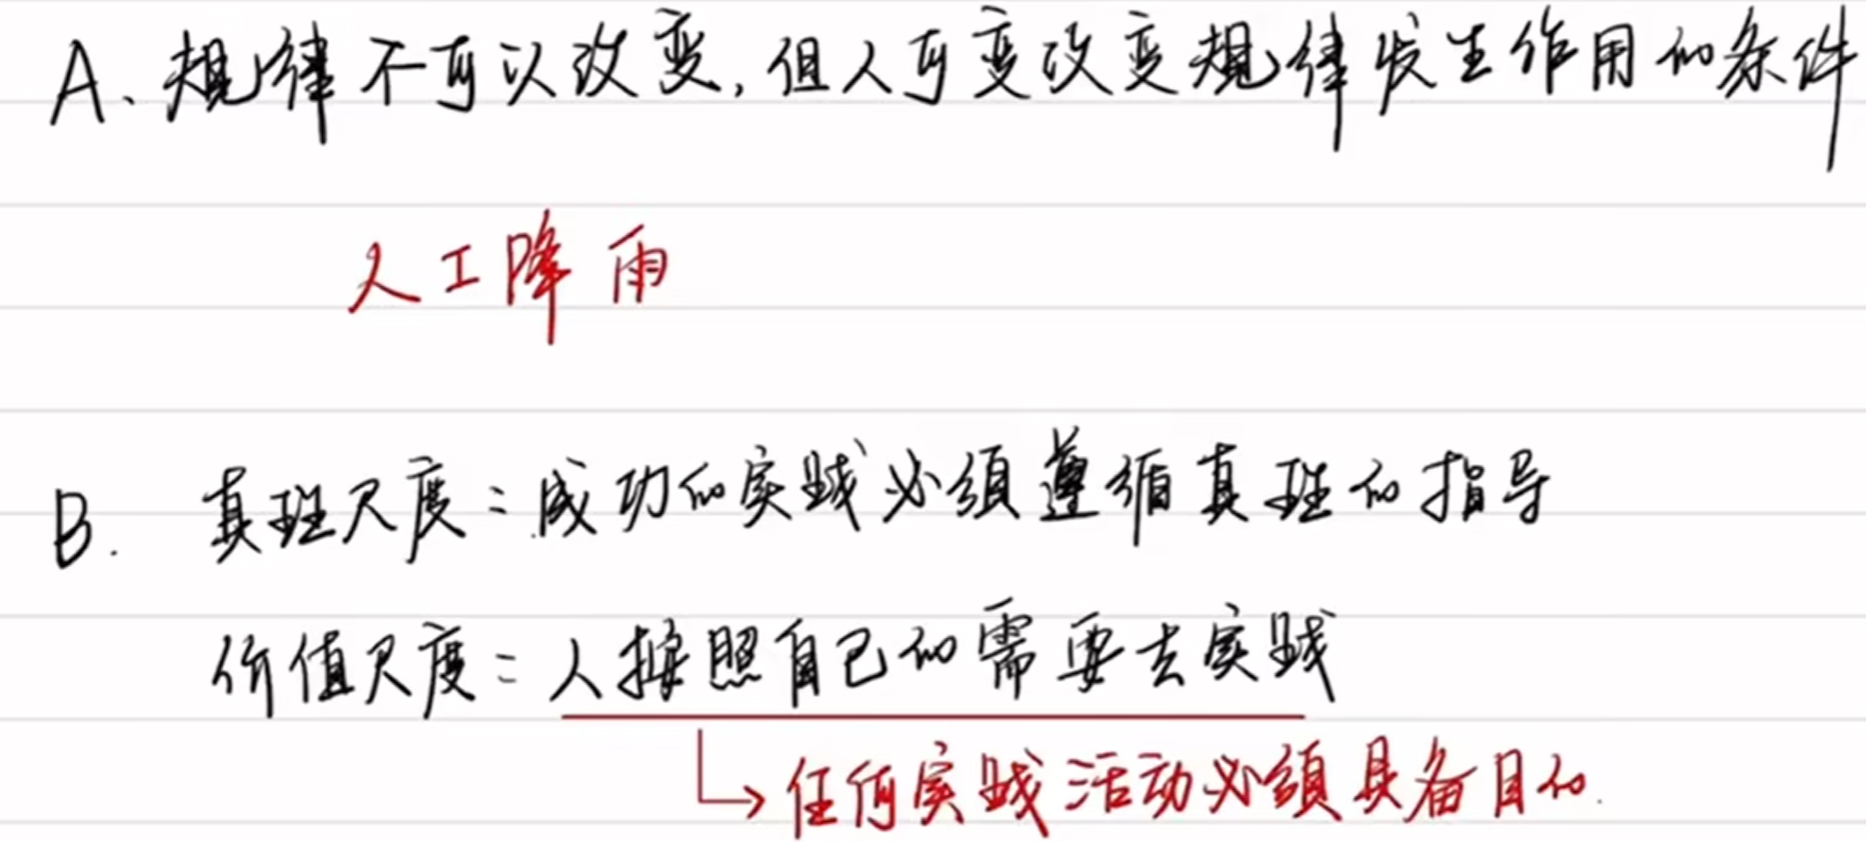 A、规律不可以改变,但人可变改变规律发生作用的条件
人工降雨
B. 真理尺度:成功的实践必须遵循真理的指导
价值尺度:人按照自己的需要去实践
↳任何实践活动必须具备目的.